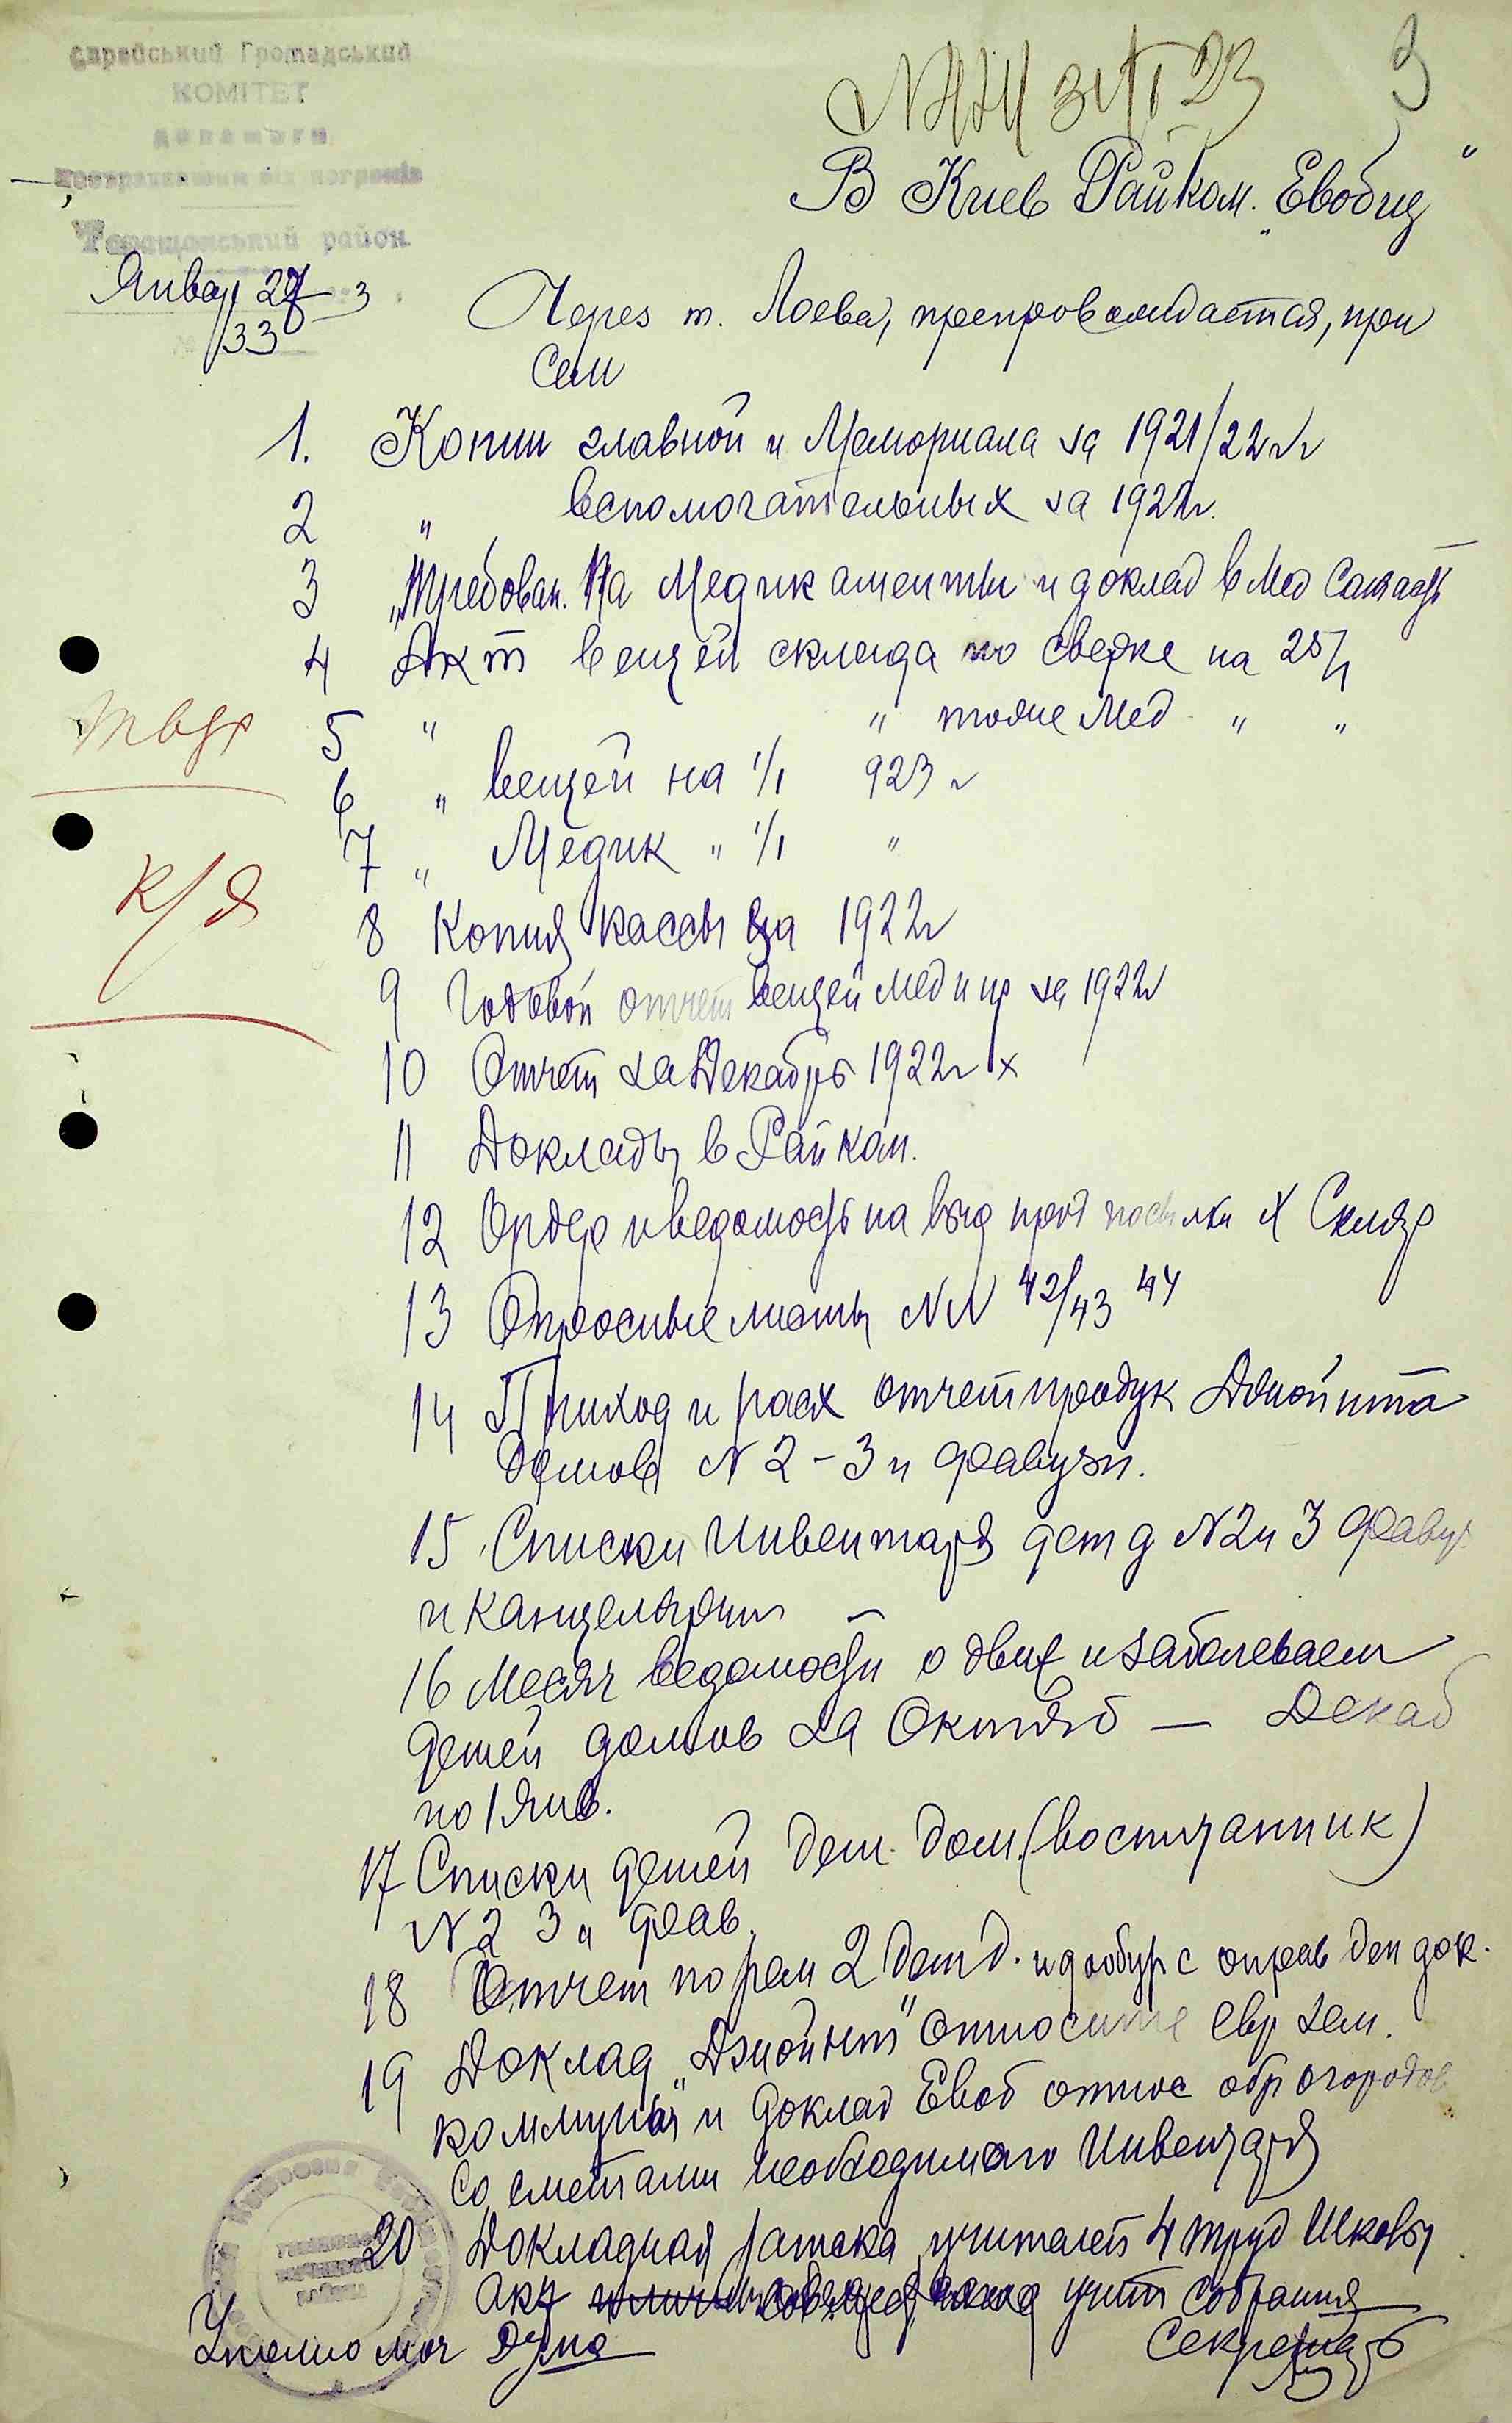 Єврейський Громадський
КОМІТЕТ
допомоги
постраждавшим від погромів
Таращанський район.
3
31/I 23
В Киев Райком. „Евобщ"
Январ 27 3
33
Через т. Лоева, препровождается, при
сем
1. Копии главной и Мемориала за 1921/22 г
2 " вспомогательных за 1922 г.
3 „Требован. На Медикаменты и доклад в Мед Санчасть
4 Акт вещей склада по сверке на 25/1
5 " " тоже Мед " "
6 " вещей на 1/1 923 г
7 " Медик " 1/1 "
К/Я
8 Копия кассы за 1922 г
9 Годовой отчет вещей мед и пр за 1922 г
10 Отчет за Декабрь 1922 г х
11 Доклады в Райком.
12 Ордер и ведомость на выд прод посылки Х Скляр
13 Опросные листы NN 42/43 44
14 Приход и расх отчет продук Джойнта
домов N 2 - 3 и
15 Списки Инвентаря дет д N 2 и 3
и канцелярии
16 Месяч ведомости о движ и заболеваем
детей домов за Октябр — Декаб
по 1 Янв.
17 Списки детей дет. дом. (воспитанник)
N 2 3 и
18 Отчет по рем 2 дет д. и с оправ ден док.
19 Доклад „Джойнт" относите евр зем.
коммуны и доклад Евоб относ обр огородов
со сметами необходимого Инвентаря
20 Докладная записка учителей 4 труд Школы
Акт учит собрания
Уполномоч Секретарь